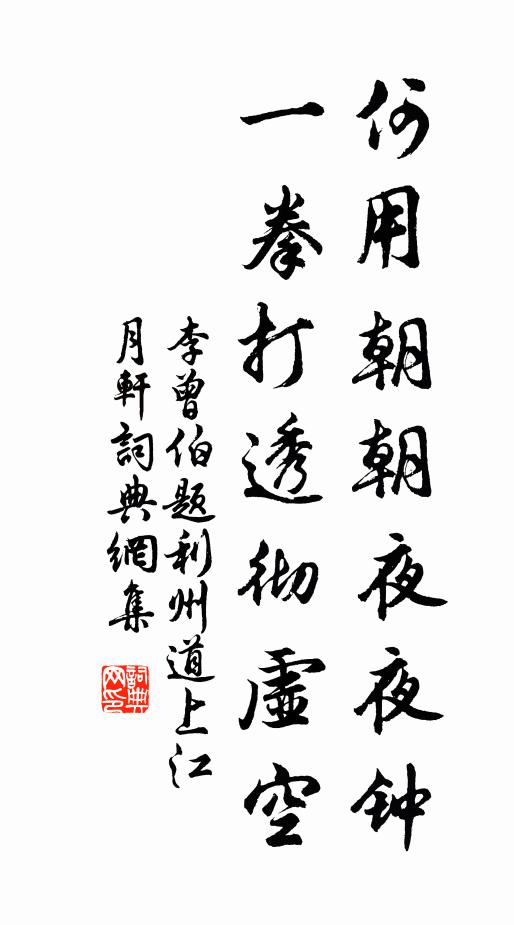 何用朝朝夜夜钟
一拳打透彻虚空
李曾伯题利州道上江
月軒詞典網集
詞典网印